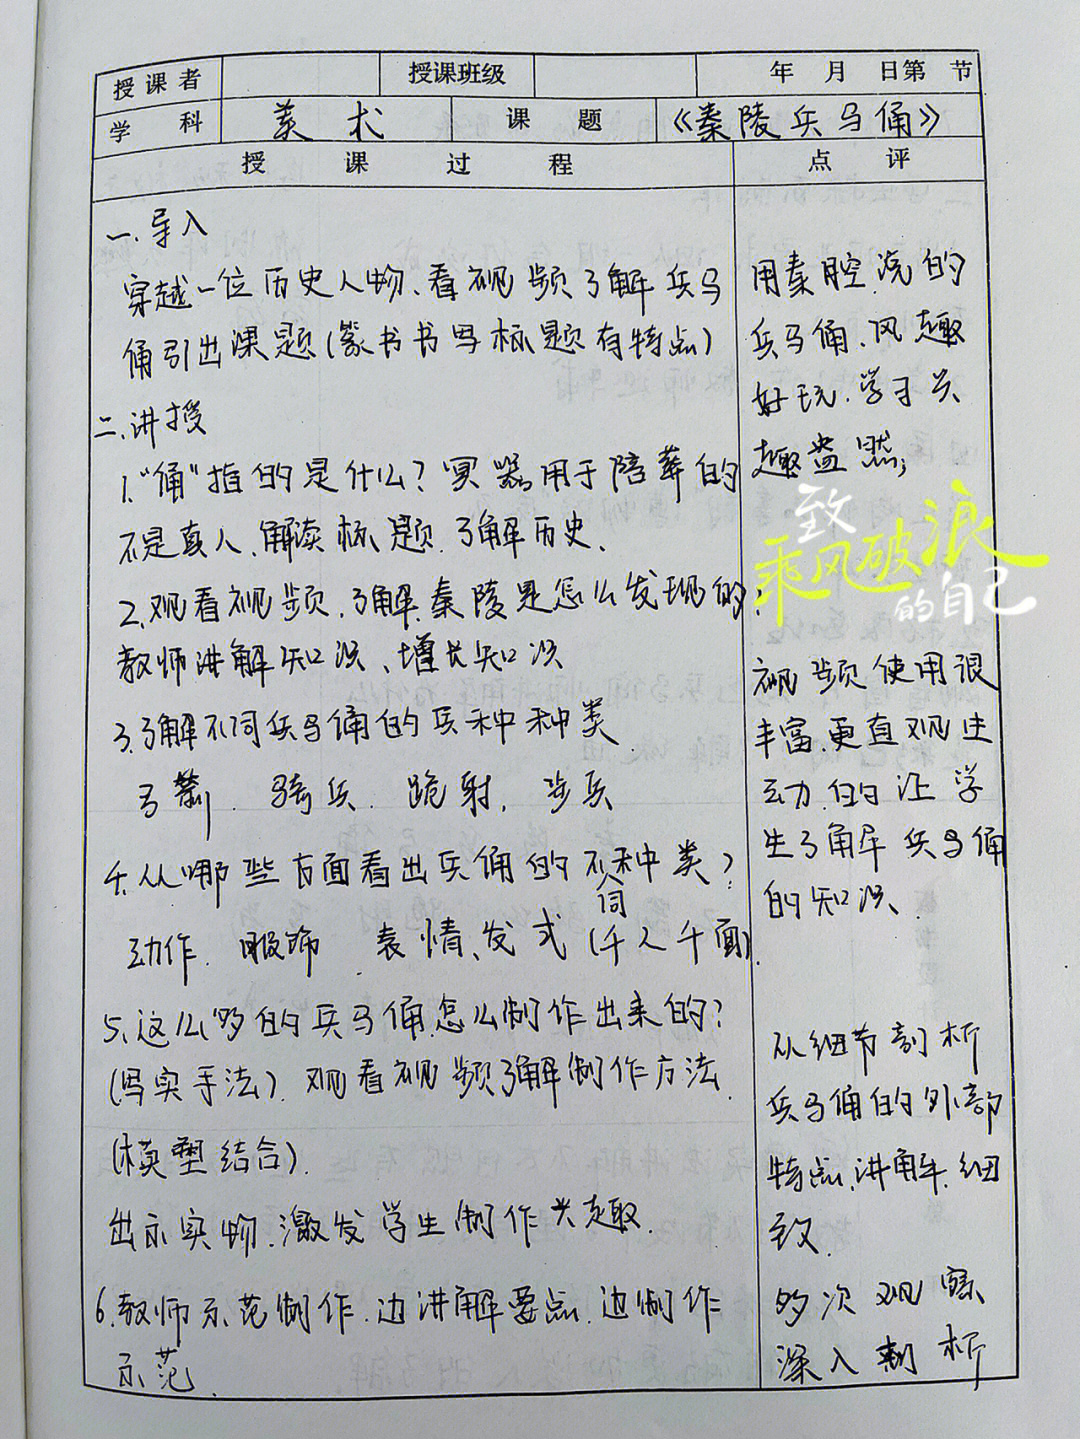 授课者 授课班级 年 月 日第 节
学 科 美术 课 题 《秦陵兵马俑》
授 课 过 程 点 评
一.导入
穿越一位历史人物、看视频了解兵马
俑引出课题(篆书书写标题有特点)
二.讲授
1."俑"指的是什么?冥器,用于陪葬的
不是真人、解读标题.了解历史、
2.观看视频,了解.秦陵是怎么发现的,
教师讲解知识、增长知识
3.了解不同兵马俑的兵种种类
弓箭、骑兵、跪射,步兵
4.从哪些方面看出兵俑的不同种类?
动作.服饰.表情、发式(千人千面).
5、这么多的兵马俑,怎么制作出来的?
(写实手法).观看视频了解制作方法.
(模塑结合).
出示实物.激发学生制作兴趣.
6.教师示范制作.边讲解要点.边制作
示范.
用秦腔说的
兵马俑.风趣
好玩.学习兴
趣盎然;
致
乘风破浪
的自己
视频使用很
丰富.更直观生
动.的让学
生了解兵马俑
的知识、
从细节剖析
兵马俑的外部
特点.讲解.细
致.
多次观察
深入剖析